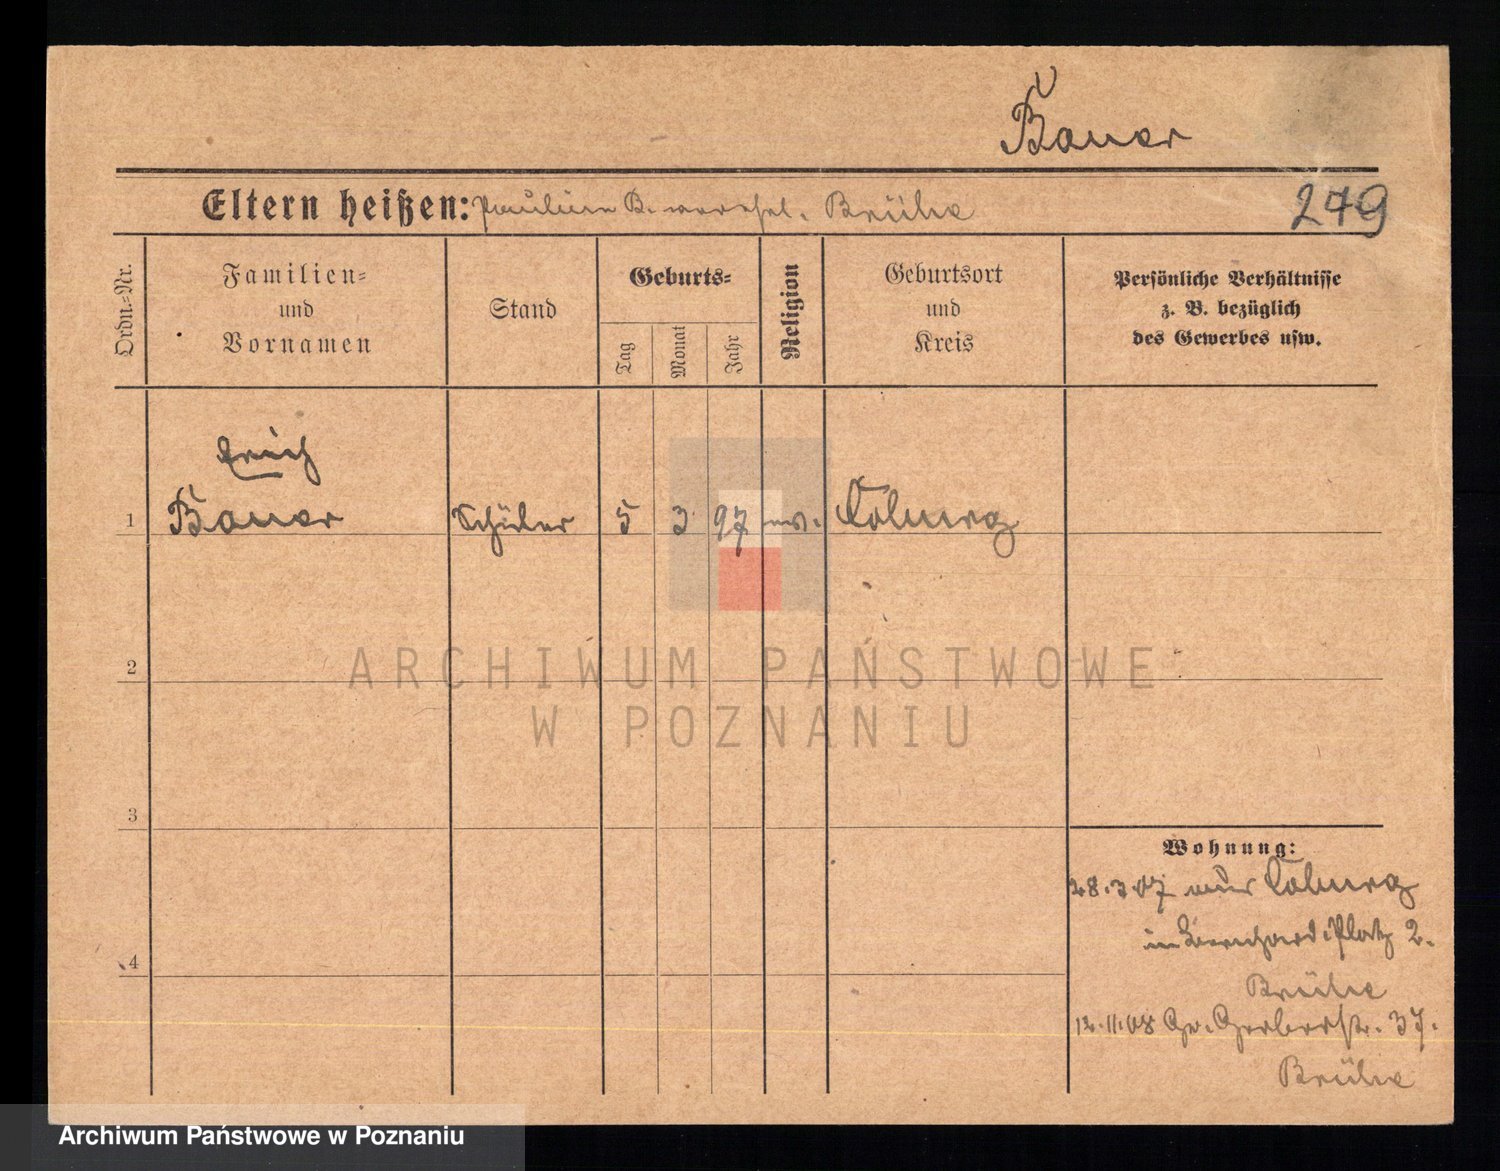 Bauer
279
Eltern heißen: Pauline B. verehel. Brühe
Ordn.-Nr.
Familien-
und
Vornamen
Stand
Geburts-
Tag
Monat
Jahr
Religion
Geburtsort
und
Kreis
Persönliche Verhältnisse
z. B. bezüglich
des Gewerbes usw.
Erich
1 Bauer Schüler 5 3 97 ev. Coburg
2
3
4
ARCHIWUM PAŃSTWOWE
W POZNANIU
Wohnung:
28.3.07 aus Coburg
in Bernhard. Platz 2.
Brühe
12.11.08 Gr. Gerberstr. 37.
Brühe
Archiwum Państwowe w Poznaniu